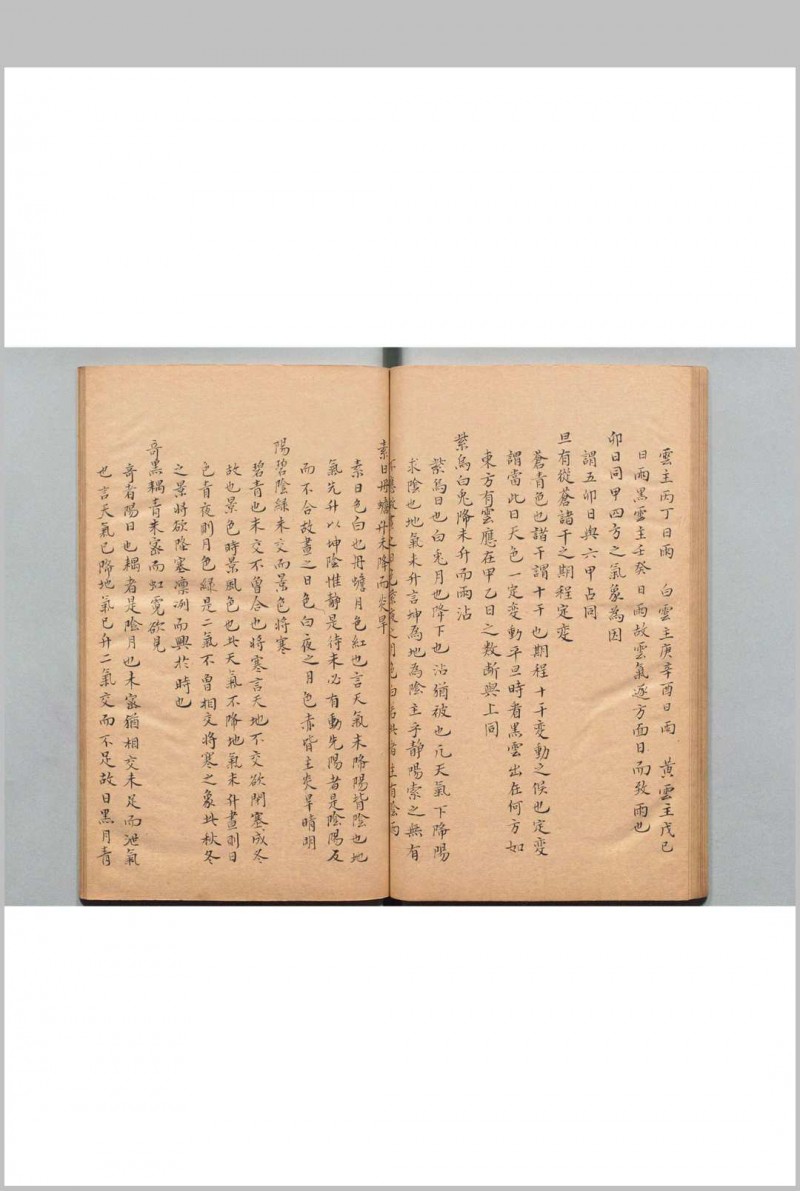 雲主丙丁日雨　白雲主庚辛酉日雨　黃雲主戊巳
日雨黑雲主壬癸日雨故雲氣逐方面日而致雨也
卯日同甲四方之氣象為因
謂五卯日與六甲占同
旦有從蒼諸干之期程定变
蒼青色也諸干謂十干也期程十干变動之候也定变
謂當此日天色一定变動平旦時看黑雲出在何方如
東方有雲應在甲乙日之数断與上同
紫烏白兎降未升而雨沾
紫烏日也白兎月也降下也沾猶被也凢天氣下降陽
求陰也地氣未升言坤為地為陰主乎静陽索之無有
素日丹蟾升未降而炎旱
素日色白也丹蟾月色紅也言天氣未降陽皆陰也地
氣先升以坤陰惟静是待未必有動先陽者是陰陽反
而不合故晝之日色白夜之月色赤皆主炎旱晴明
陽碧陰綠未交而景色將寒
碧青也未交不曾合也將寒言天地不交欲閉塞成冬
故也景色時景風色也此天氣不降地氣未升晝則日
色青夜則月色綠是二氣不曾相交將寒之象此秋冬
之景將欲陰塞凛冽而興於時也
奇黑耦青未密而虹霓欲見
奇者陽日也耦者是陰月也未密猶相交未足而泄氣
也言天氣已降地氣已升二氣交而不足故日黑月青